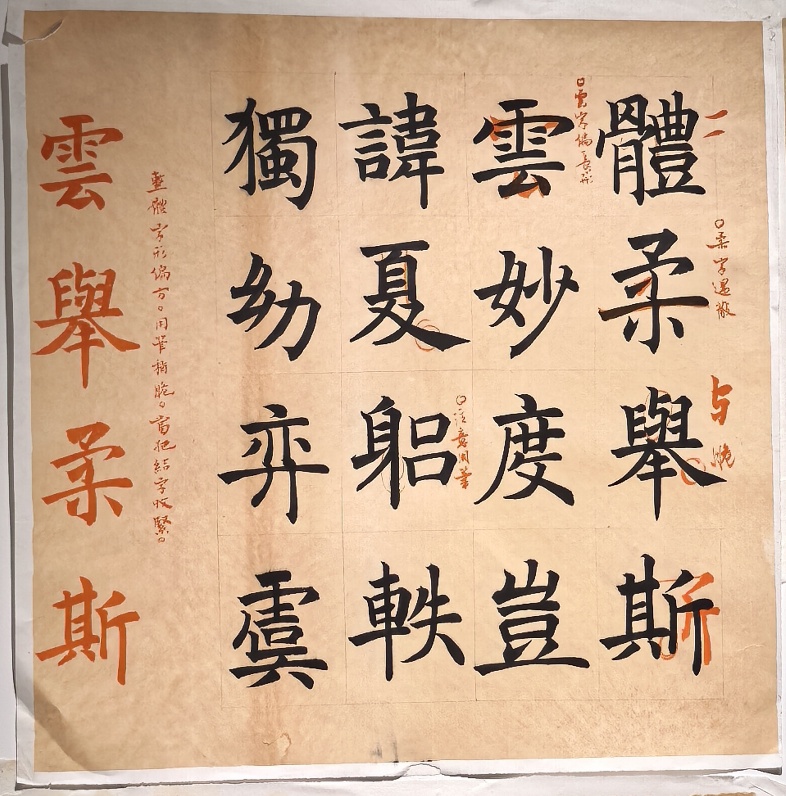 體柔舉斯
雲妙度豈
諱夏躳軼
獨幼弈虞
雲字偏長形
柔字過散
与
注意用筆
整體字形偏方。用筆稍脆。當把結字收緊。
雲舉柔斯